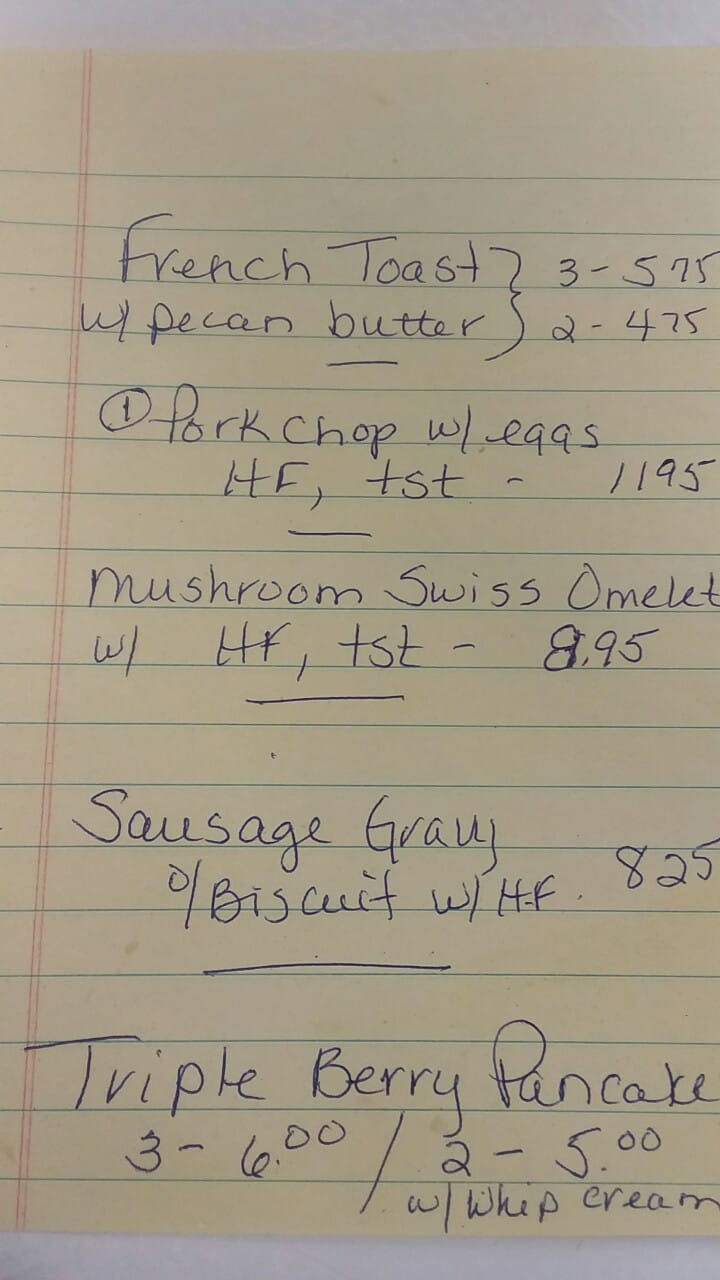 French Toast } 3 - 575
w/ pecan butter } 2 - 475
① Pork Chop w/ eggs
HF, tst - 1195
Mushroom Swiss Omelet
w/ HF, tst - 8.95
Sausage Gravy
o/Biscuit w/ HF. 825
Triple Berry Pancake
3 - 6.00 / 2 - 5.00
w/ Whip cream